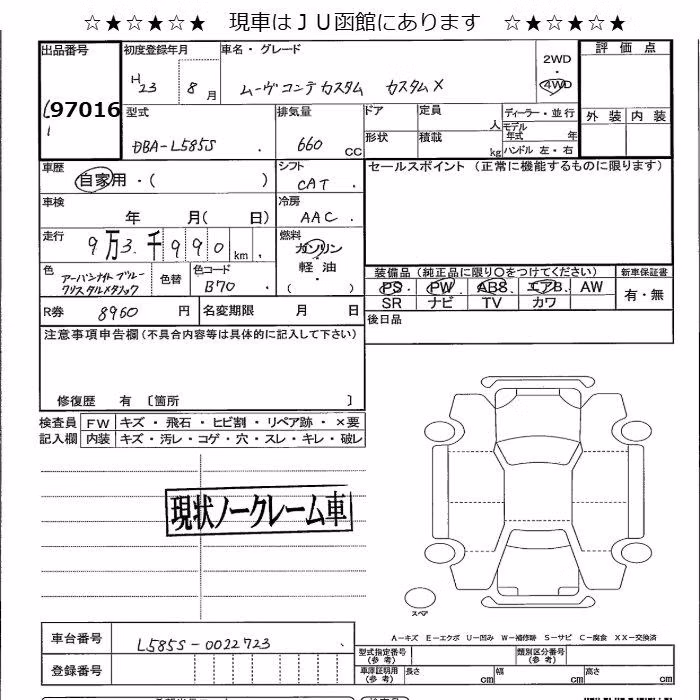 ☆★☆★☆★　現車はＪＵ函館にあります　☆★☆★☆★
出品番号 初度登録年月 車名・グレード 評価点
H23 8月 ムーヴコンテカスタム カスタムX 2WD 4WD
97016 外装 内装
型式 排気量 ドア 定員 人 ディーラー・並行
モデル年式 年
DBA-L585S 660 CC 形状 積載 kg ハンドル 左・右
車歴 シフト セールスポイント（正常に機能するものに限ります）
自家用・（ ） CAT
車検 冷房
年 月（ 日） AAC
走行 燃料
9万3千990km ガソリン・軽油・（ ）
色 色替 色コード 装備品（純正品に限り〇をつけてください） 新車保証書
アーバンナイトブルークリスタルメタリック B70 PS PW ABS エアB AW 有・無
SR ナビ TV カワ
R券 8960 円 名変期限 月 日 後日品
注意事項申告欄（不具合内容等は具体的に記入して下さい）
修復歴 有 〔箇所 〕
検査員記入欄 FW キズ・飛石・ヒビ割・リペア跡・×要
内装 キズ・汚レ・コゲ・穴・スレ・キレ・破レ
現状ノークレーム車
スペア
A－キズ E－エクボ U－凹み W－補修跡 S－サビ C－腐食 XX－交換済
車台番号 L585S-0022723 型式指定番号（参考） 類別区分番号（参考）
登録番号 車庫証明用（参考） 長さ cm 幅 cm 高さ cm